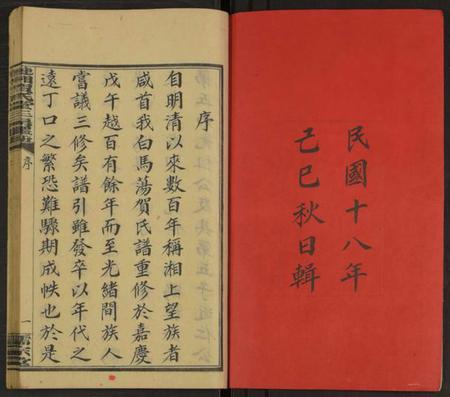 民國十八年
己巳秋日輯
序
自明清以來數百年稱湘上望族者
咸首我白馬蕩賀氏譜重修於嘉慶
戊午越百有餘年而至光緒間族人
嘗議三修矣譜引雖發卒以年代之
遠丁口之繁恐難驟期成帙也於是
序
一